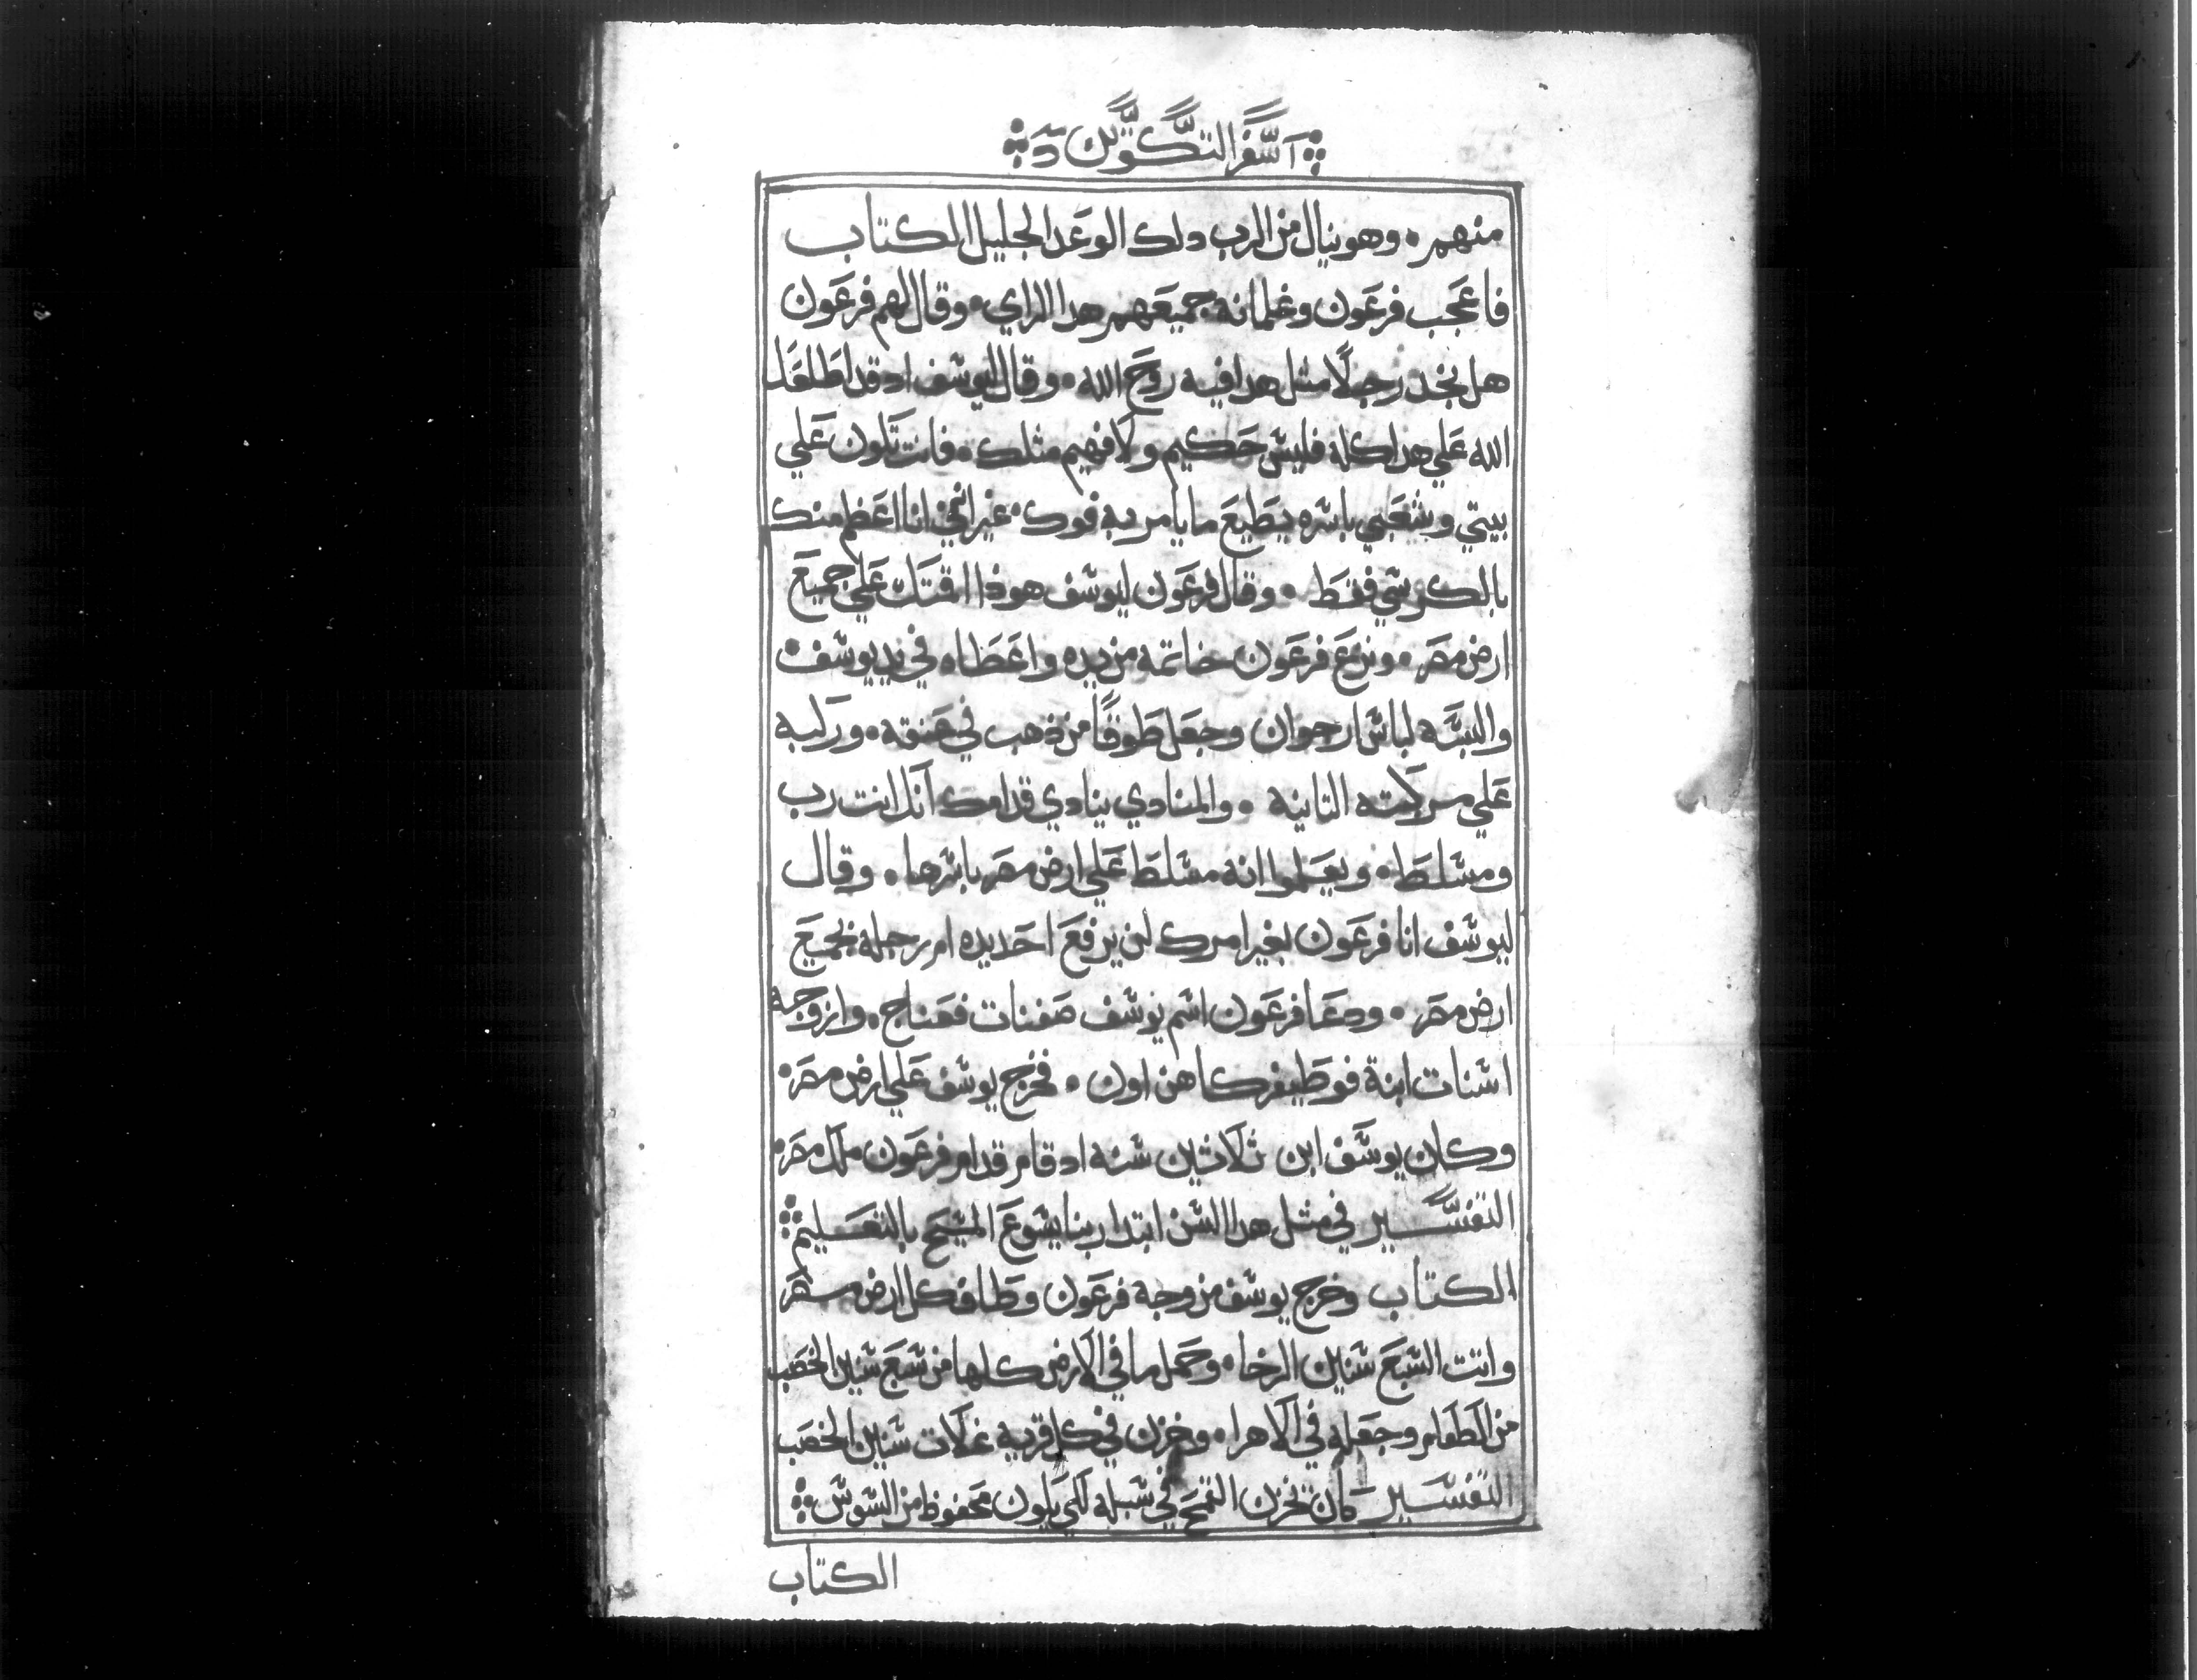 اسفر التكوين
منهم۰ وهو ينال من الرب دلك الوعد الجليل الكتاب
فاعجب فرعون وغلمانه جميعهم هدا الراي۰ وقال لهم فرعون
هل نجد رجلًا مثل هدا فيه روح الله۰ وقال ليوسف اد قد اطلعك
الله علي هدا كله فليس حكيم ولا فهيم مثلك۰ فانت تكون علي
بيتي وشعبي باسره يطيع ما يامر به فوك۰ غير انني انا اعظم منك
بالكرسي فقط ۰ وقال فرعون ليوسف هوذا اقمتك علي جميع
ارض مصر۰ ونزع فرعون خاتمه من يده واعطاه في يد يوسف۰
والبسه لباس ارجوان وجعل طوقًا من ذهب في عنقه۰ وركبه
علي مركبته التانيه ۰ والمنادي ينادي قدامك انك انت رب
ومسلط۰ ويعلموا انه مسلط علي ارض مصر باسرها۰ وقال
ليوسف انا فرعون بغير امرك لن يرفع احد يده ام رجله بجميع
ارض مصر۰ ودعا فرعون اسم يوسف صفنات فعناج۰ وازوجه
اسنات ابنة فوطيفر كاهن اون ۰ فخرج يوسف علي ارض مصر۰
وكان يوسف ابن ثلاثين سنه اد قام قدام فرعون ملك مصر۰
التفسير في مثل هدا السن ابتدا ربنا يسوع المسيح بالتعليم
الكتاب وخرج يوسف من وجه فرعون وطاف كل ارض مصر
واتت السبع سنين الرخا۰ وحمل ما في الارض كلها من سبع سنين الخصب
من الطعام وجعله في الاهرا۰ وخزن في كل قريه غلات سنين الخصب
التفسير كان تخزن القمح في سبله لكي يكون محفوظ من السوس
الكتاب